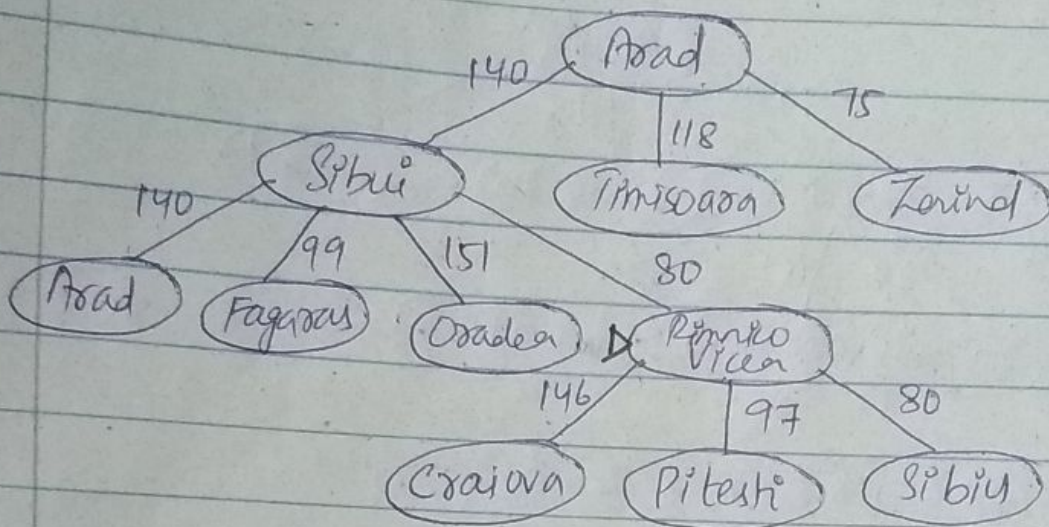 Arad
140
75
118
Sibui
Timisoara
Zerind
140
99
151
80
Arad
Fagaras
Oradea
Rimnico
Vicea
146
97
80
Craiova
Pitesti
Sibiu